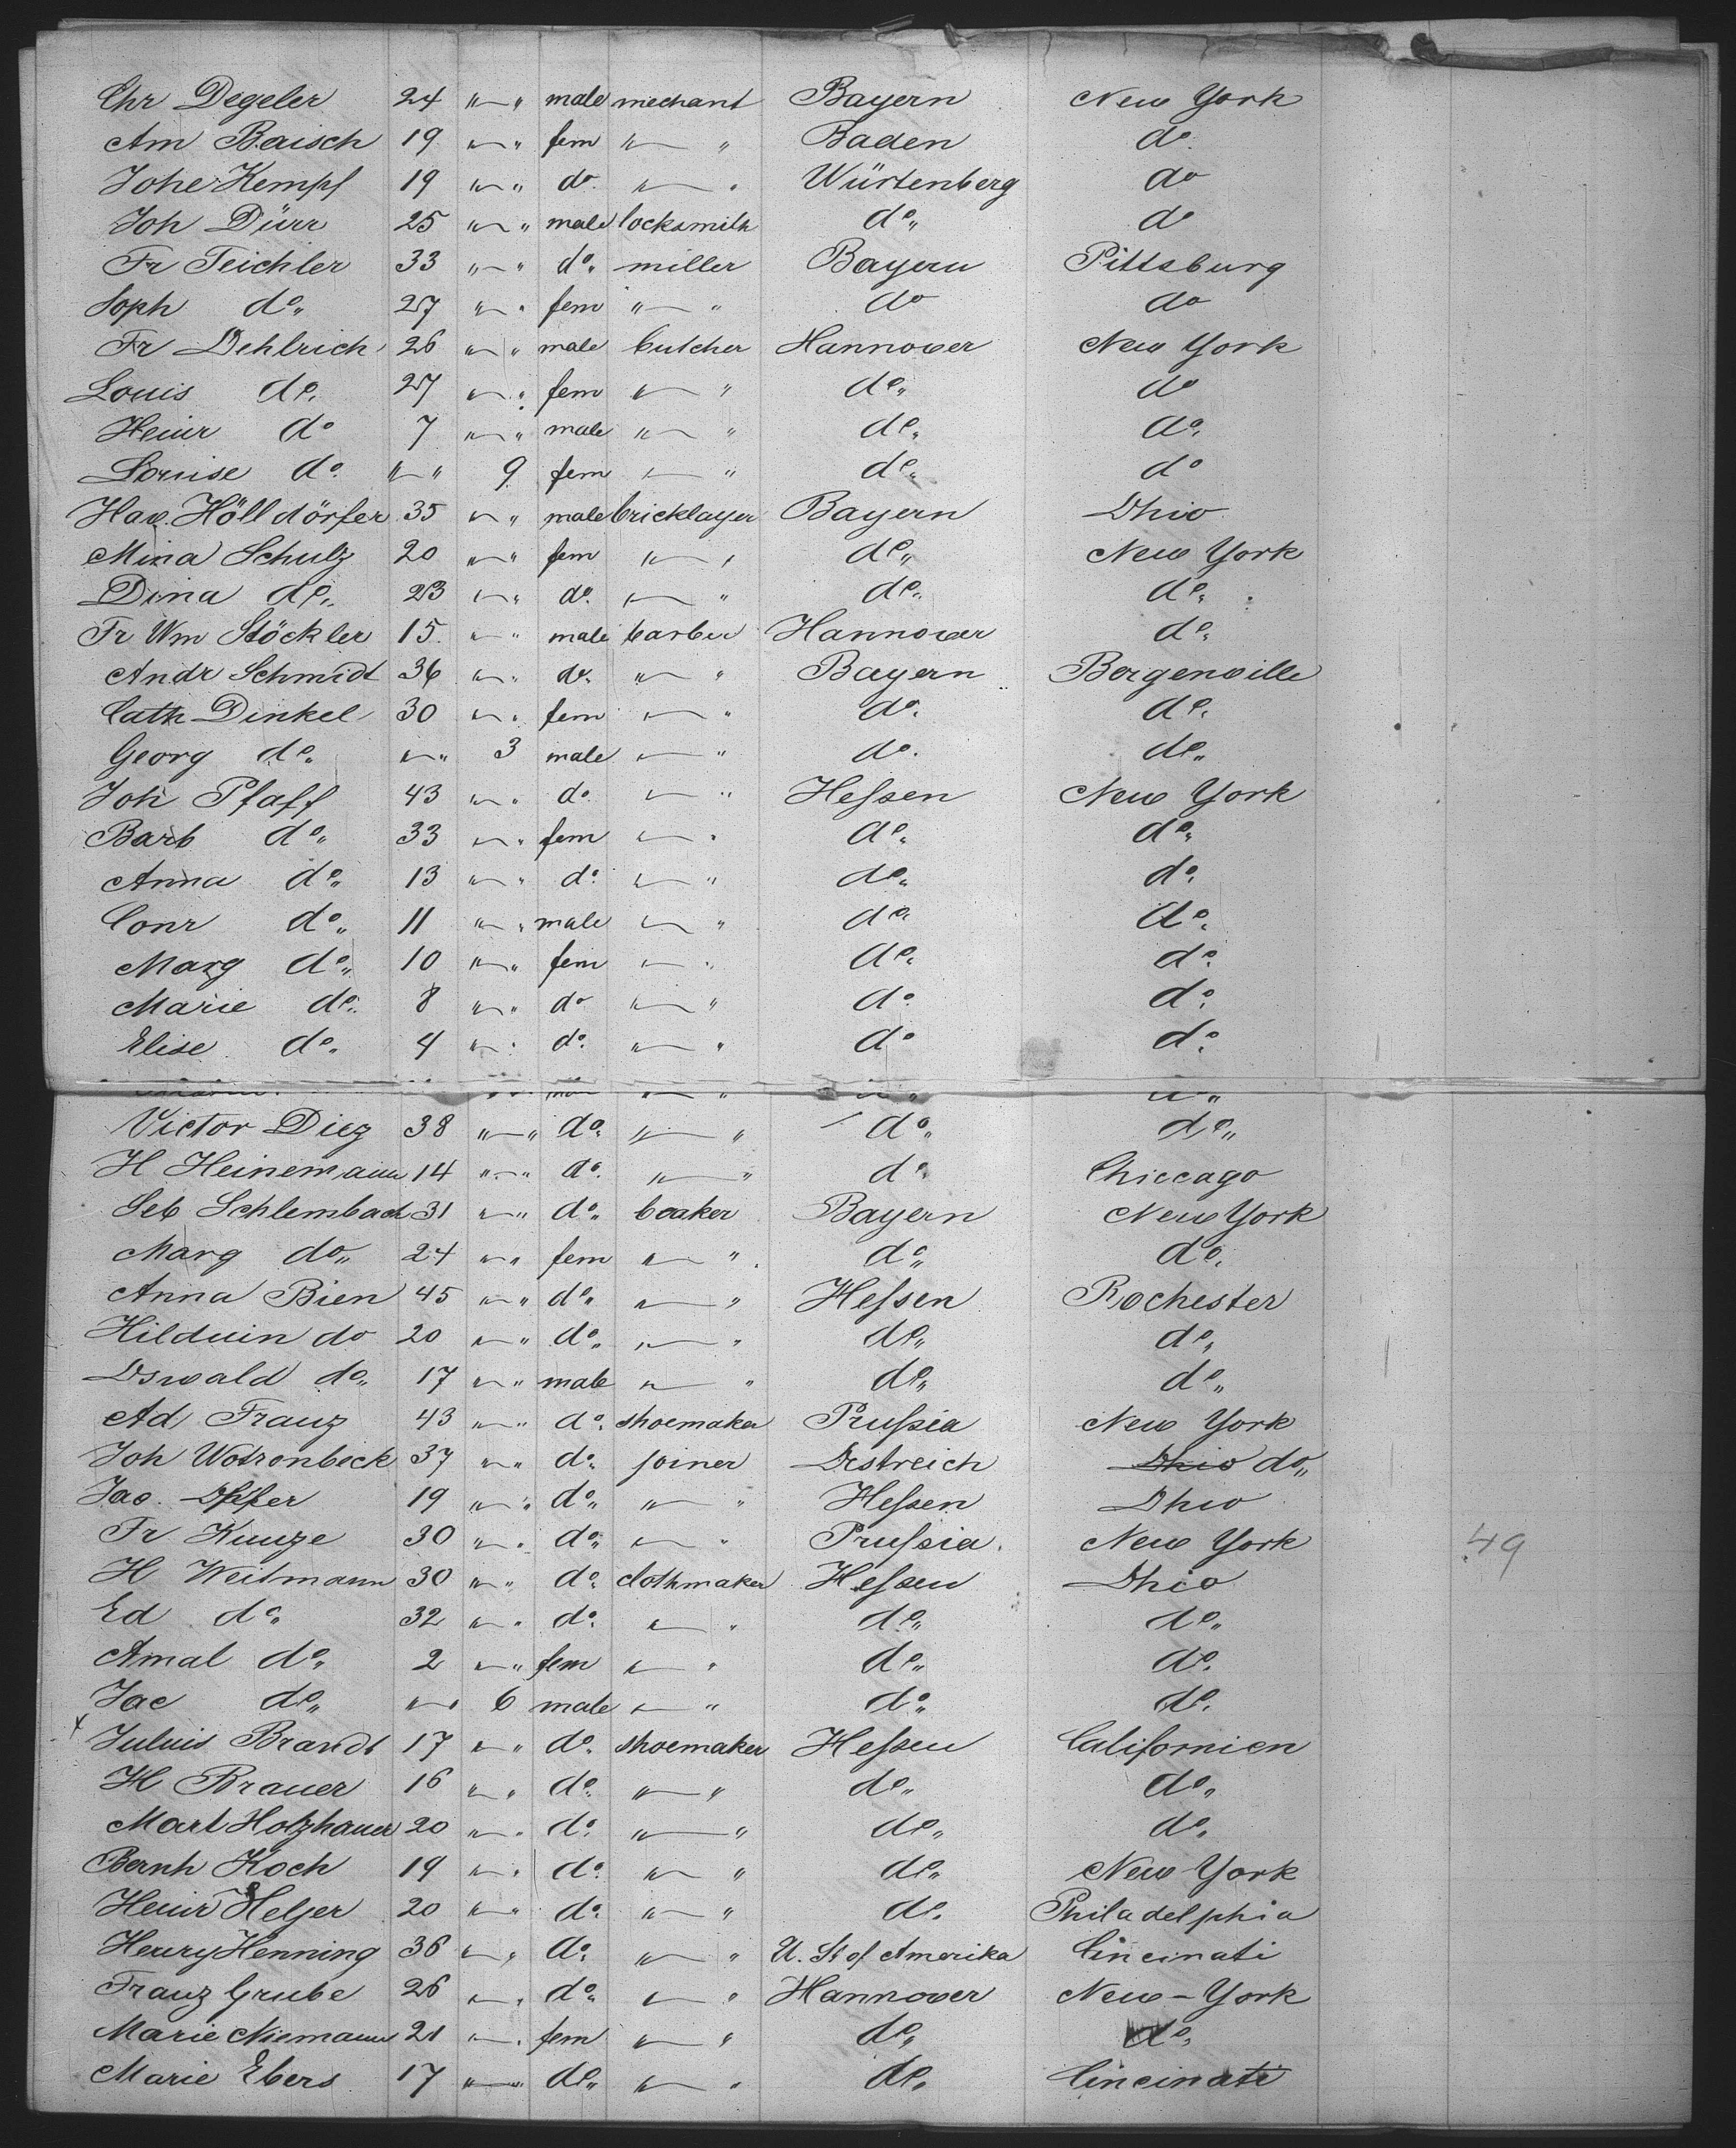 Chr Degeler 24 "—" male mechant Bayern New York
Am Baisch 19 "—" fem "—" Baden do
Johe Kempf 19 "—" do "—" Würtenberg do
Joh Dürr 25 "—" male locksmith do" do
Fr Teichler 33 "—" do" miller Bayern Pittsburg
Soph do" 27 "—" fem "—" do do
Fr Oehlrich 26 "—" male butcher Hannover New York
Louis do" 27 "—" fem "—" do" do
Heinr do 7 "—" male "—" do" do"
Louise do "—" 9 fem "—" do" do
Hav. Hölldörfer 35 "—" male bricklayer Bayern Ohio
Mina Schulz 20 "—" fem "—" do" New York
Dina do" 23 "—" do "—" do" do"
Fr Wm Stöckler 15 "—" male barber Hannover do"
Andr Schmidt 36 "—" do" "—" Bayern Borgenville
Cath Dinkel 30 "—" fem "—" do" do"
Georg do" "—" 3 male "—" do. do"
Joh Pfaff 43 "—" do "—" Heſsen New York
Barb do" 33 "—" fem "—" do" do"
Anna do" 13 "—" do "—" do" do"
Conr do" 11 "—" male "—" do" do"
Marg do" 10 "—" fem "—" do" do
Marie do" 8 "—" do "—" do do"
Elise do" 4 "—" do "—" do do"
Victor Diez 38 "—" do" "—" do" do"
H Heinemann 14 "—" do "—" do" Chiccago
Seb Schlembach 31 "—" do" baaker Bayern New York
Marg do" 24 "—" fem "—" do" do"
Anna Bien 45 "—" do" "—" Heſsen Rochester
Hilduin do 20 "—" do" "—" do" do"
Oswald do" 17 "—" male "—" do" do"
Ad Franz 43 "—" do" shoemaker Pruſsia New York
Joh Wotronbeck 37 "—" do" joiner Oestreich Ohio do"
Jac. Opfer 19 "—" do" "—" Heſsen Ohio
Fr Kunze 30 "—" do" "—" Pruſsia New York 49
H Weitmann 30 "—" do" clothmaker Heſsen Ohio
Ed do" 32 "—" do" "—" do" do"
Amal do" 2 "—" fem "—" do" do"
Jac do" "—" 6 male "—" do" do"
x Juluis Brandt 17 "—" do" shoemaker Heſsen Californien
H Brauer 16 "—" do" "—" do" do"
Mart Holzhauer 20 "—" do" "—" do" do"
Bernh Koch 19 "—" do" "—" do" New York
Heinr Helser 20 "—" do" "—" do" Philadelphia
Henry Henning 36 "—" do" "—" U. St of Amerika Cincinati
Franz Grube 26 "—" do" "—" Hannover New-York
Marie Niemann 21 "—" fem "—" do" do"
Marie Ebers 17 "—" do" "—" do" Cincinati